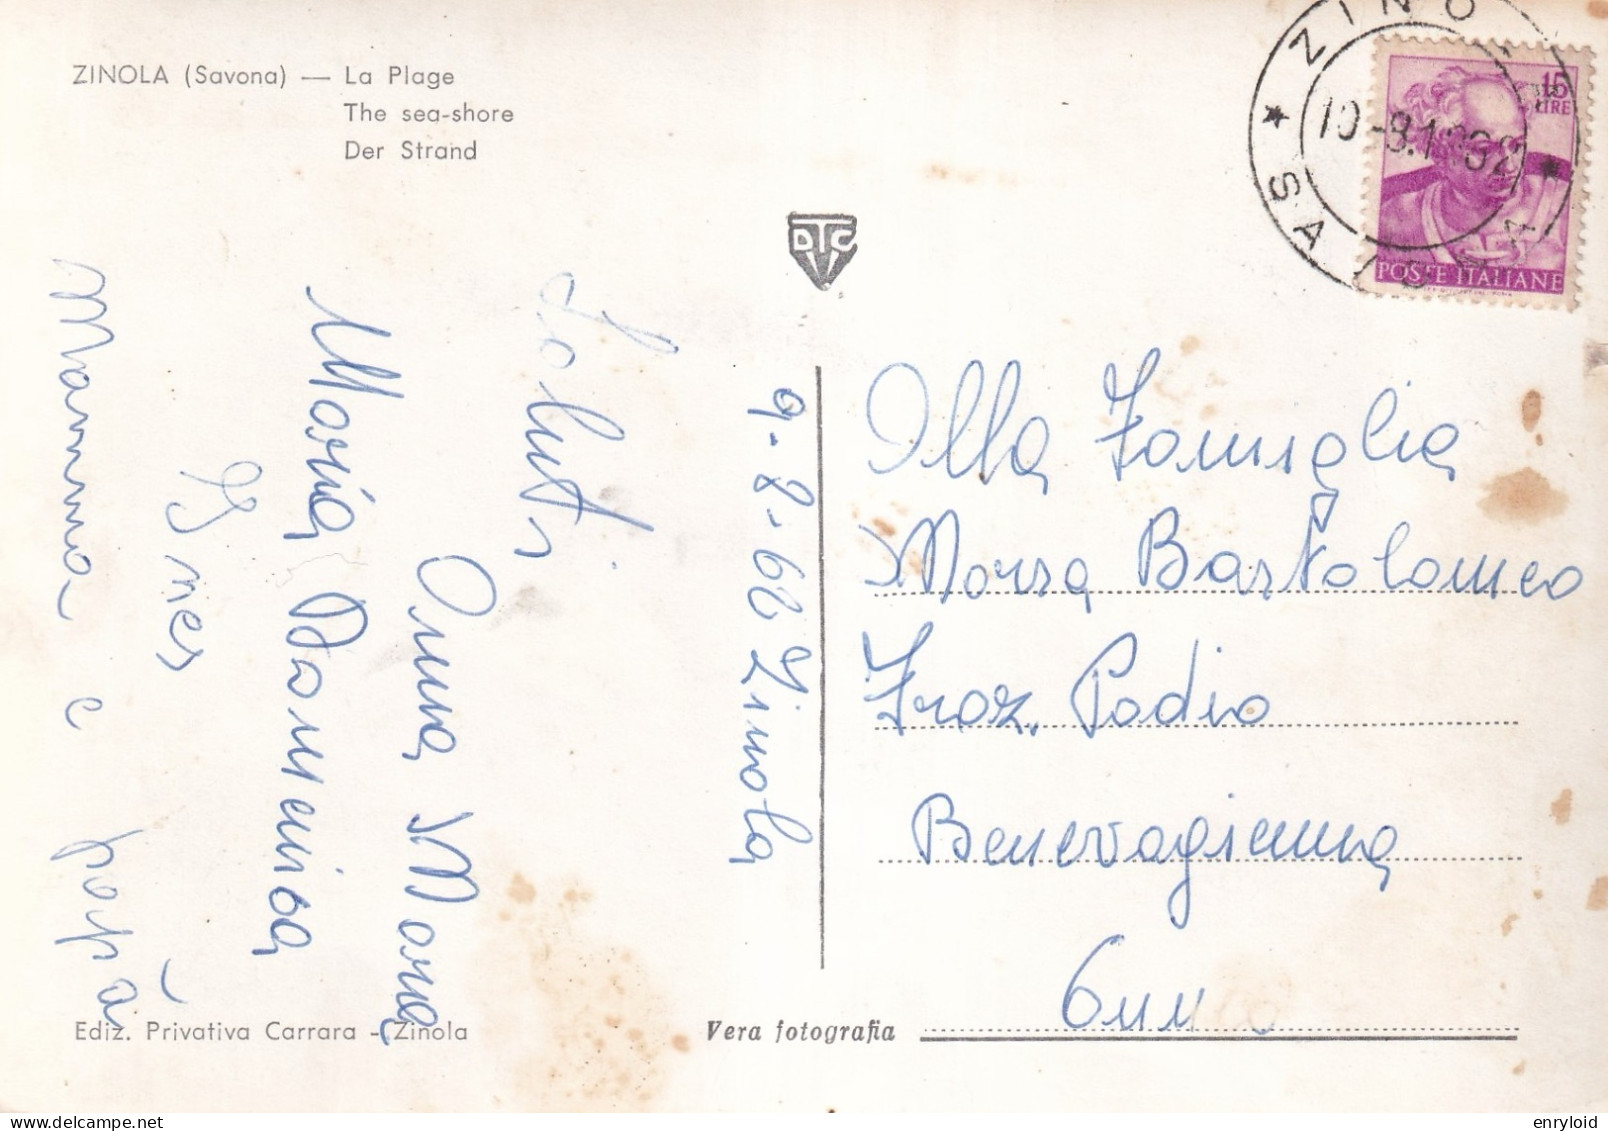 ZINOLA (Savona) — La Plage
The sea-shore
Der Strand
ZINO
SAVONA
10-8.1962
15
LIRE
POSTE ITALIANE
DTC
9-8-62 Zinola
Saluti
Anna Maria
Maria Domenica
Ines
Mamma e papà
Alla Famiglia
Morra Bartolomeo
Fraz. Podio
Benevagienna
Cuneo
Ediz. Privativa Carrara - Zinola
Vera fotografia
enryloid
delcampe.net